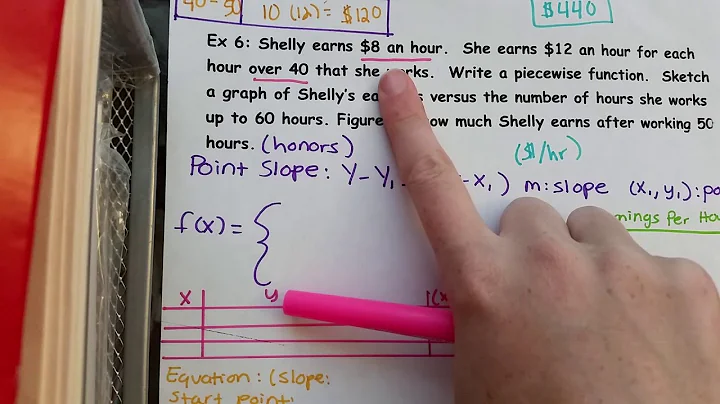 40-50 10 (12) = $120
$440
Ex 6: Shelly earns $8 an hour. She earns $12 an hour for each
hour over 40 that she works. Write a piecewise function. Sketch
a graph of Shelly's versus the number of hours she works
up to 60 hours. Figure how much Shelly earns after working 50
hours. (honors)
($/hr)
Point Slope: Y-Y₁ -X₁) m:slope (X₁,Y₁):po
nings Per Ho
f(x)= {
x y (x
Equation: (slope:
Start point: